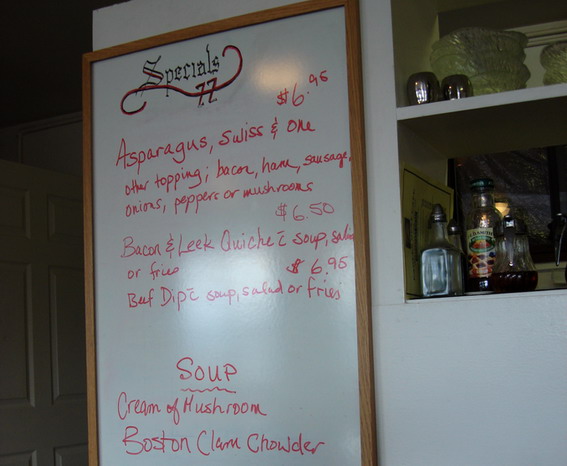 Specials
77
$6.95
Asparagus, Swiss & one
other topping; bacon, ham, sausage,
onions, peppers or mushrooms
$6.50
Bacon & Leek Quiche c̄ soup, salad
or fries $6.95
Beef Dip c̄ soup, salad or fries
Soup
Cream of Mushroom
Boston Clam Chowder